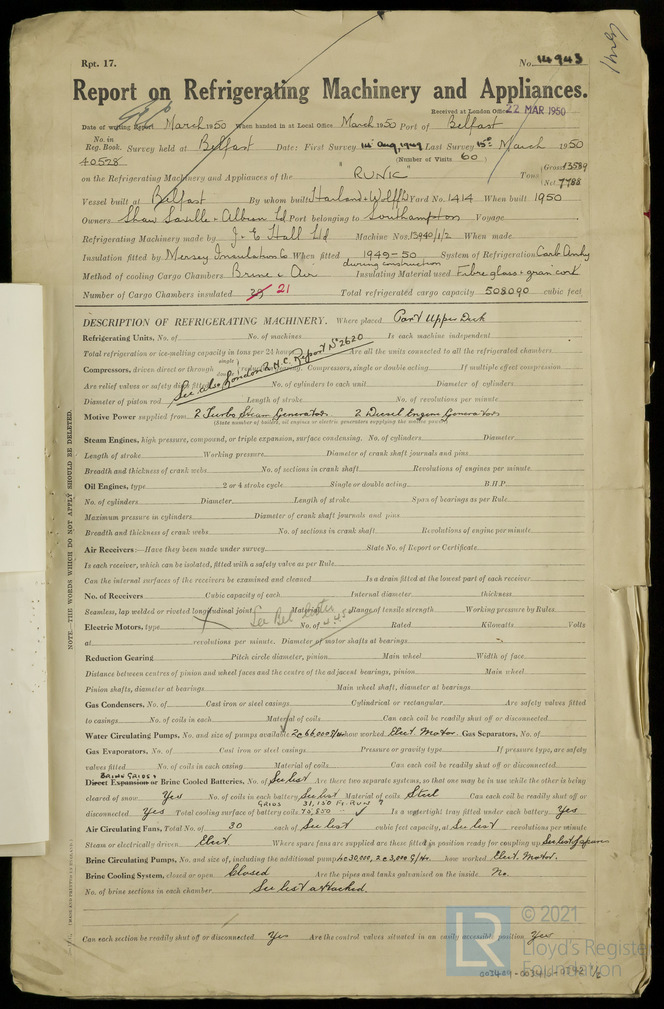 Rpt. 17.
No. 14943
Report on Refrigerating Machinery and Appliances.
Received at London Office 22 MAR 1950
Date of writing Report March 1950 When handed in at Local Office March 1950 Port of Belfast
No. in Reg. Book. Survey held at Belfast Date: First Survey Aug, 1949 Last Survey March 1950
40528 (Number of Visits 60)
on the Refrigerating Machinery and Appliances of the "RUNIC" Tons Gross 13589 Net 7788
Vessel built at Belfast By whom built Harland & Wolff Ld Yard No. 1414 When built 1950
Owners Shaw Savill & Albion Ld Port belonging to Southampton Voyage
Refrigerating Machinery made by J. & E Hall Ld Machine Nos. 13940/1/2 When made
Insulation fitted by Mersey Insulation Co When fitted 1949-50 during construction System of Refrigeration Carb Anhy
Method of cooling Cargo Chambers Brine & Air Insulating Material used Fibre glass & gran cork
Number of Cargo Chambers insulated 21 Total refrigerated cargo capacity 508090 cubic feet
DESCRIPTION OF REFRIGERATING MACHINERY. Where placed Port Upper Deck
Refrigerating Units, No. of No. of machines Is each machine independent
Total refrigeration or ice-melting capacity in tons per 24 hours Are all the units connected to all the refrigerated chambers
Compressors, driven direct or through single double reduction gearing. Compressors, single or double acting If multiple effect compression
See also London R.M.C. Report No 2620
Are relief valves or safety discs fitted No. of cylinders to each unit Diameter of cylinders
Diameter of piston rod Length of stroke No. of revolutions per minute
Motive Power supplied from 2 Turbo Steam Generators 2 Diesel Engine Generators
(State number of boilers, oil engines or electric generators supplying the motive power)
Steam Engines, high pressure, compound, or triple expansion, surface condensing. No. of cylinders Diameter
Length of stroke Working pressure Diameter of crank shaft journals and pins
Breadth and thickness of crank webs No. of sections in crank shaft Revolutions of engines per minute
Oil Engines, type 2 or 4 stroke cycle Single or double acting B.H.P.
No. of cylinders Diameter Length of stroke Span of bearings as per Rule
Maximum pressure in cylinders Diameter of crank shaft journals and pins
Breadth and thickness of crank webs No. of sections in crank shaft Revolutions of engine per minute
Air Receivers:—Have they been made under survey State No. of Report or Certificate
Is each receiver, which can be isolated, fitted with a safety valve as per Rule
Can the internal surfaces of the receivers be examined and cleaned Is a drain fitted at the lowest part of each receiver
No. of Receivers Cubic capacity of each Internal diameter thickness
Seamless, lap welded or riveted longitudinal joint Material Range of tensile strength Working pressure by Rules
Electric Motors, type No. of Rated Kilowatts Volts
at revolutions per minute. Diameter of motor shafts at bearings
Reduction Gearing Pitch circle diameter, pinion Main wheel Width of face
Distance between centres of pinion and wheel faces and the centre of the adjacent bearings, pinion Main wheel
Pinion shafts, diameter at bearings Main wheel shaft, diameter at bearings
Gas Condensers, No. of Cast iron or steel casings Cylindrical or rectangular Are safety valves fitted
to casings No. of coils in each Material of coils Can each coil be readily shut off or disconnected
Water Circulating Pumps, No. and size of pumps available 2 @ 66,000 how worked Elect. Motor. Gas Separators, No. of
Gas Evaporators, No. of Cast iron or steel casings Pressure or gravity type If pressure type, are safety
valves fitted No. of coils in each casing Material of coils Can each coil be readily shut off or disconnected
BRINE GRIDS &
Direct Expansion or Brine Cooled Batteries, No. of See list Are there two separate systems, so that one may be in use while the other is being
cleared of snow Yes No. of coils in each battery See list Material of coils Steel Can each coil be readily shut off or
GRIDS 31,150 Ft. Run
disconnected Yes Total cooling surface of battery coils Is a watertight tray fitted under each battery Yes
Air Circulating Fans, Total No. of 30 each of See list cubic feet capacity, at See list revolutions per minute
Steam or electrically driven Elect Where spare fans are supplied are these fitted in position ready for coupling up See list of spares
Brine Circulating Pumps, No. and size of, including the additional pump how worked Elect. Motor.
Brine Cooling System, closed or open Closed Are the pipes and tanks galvanised on the inside No.
No. of brine sections in each chamber See list attached.
Can each section be readily shut off or disconnected Yes Are the control valves situated in an easily accessible position Yes
NOTE.—THE WORDS WHICH DO NOT APPLY SHOULD BE DELETED.
LR © 2021
Lloyd's Register
Foundation